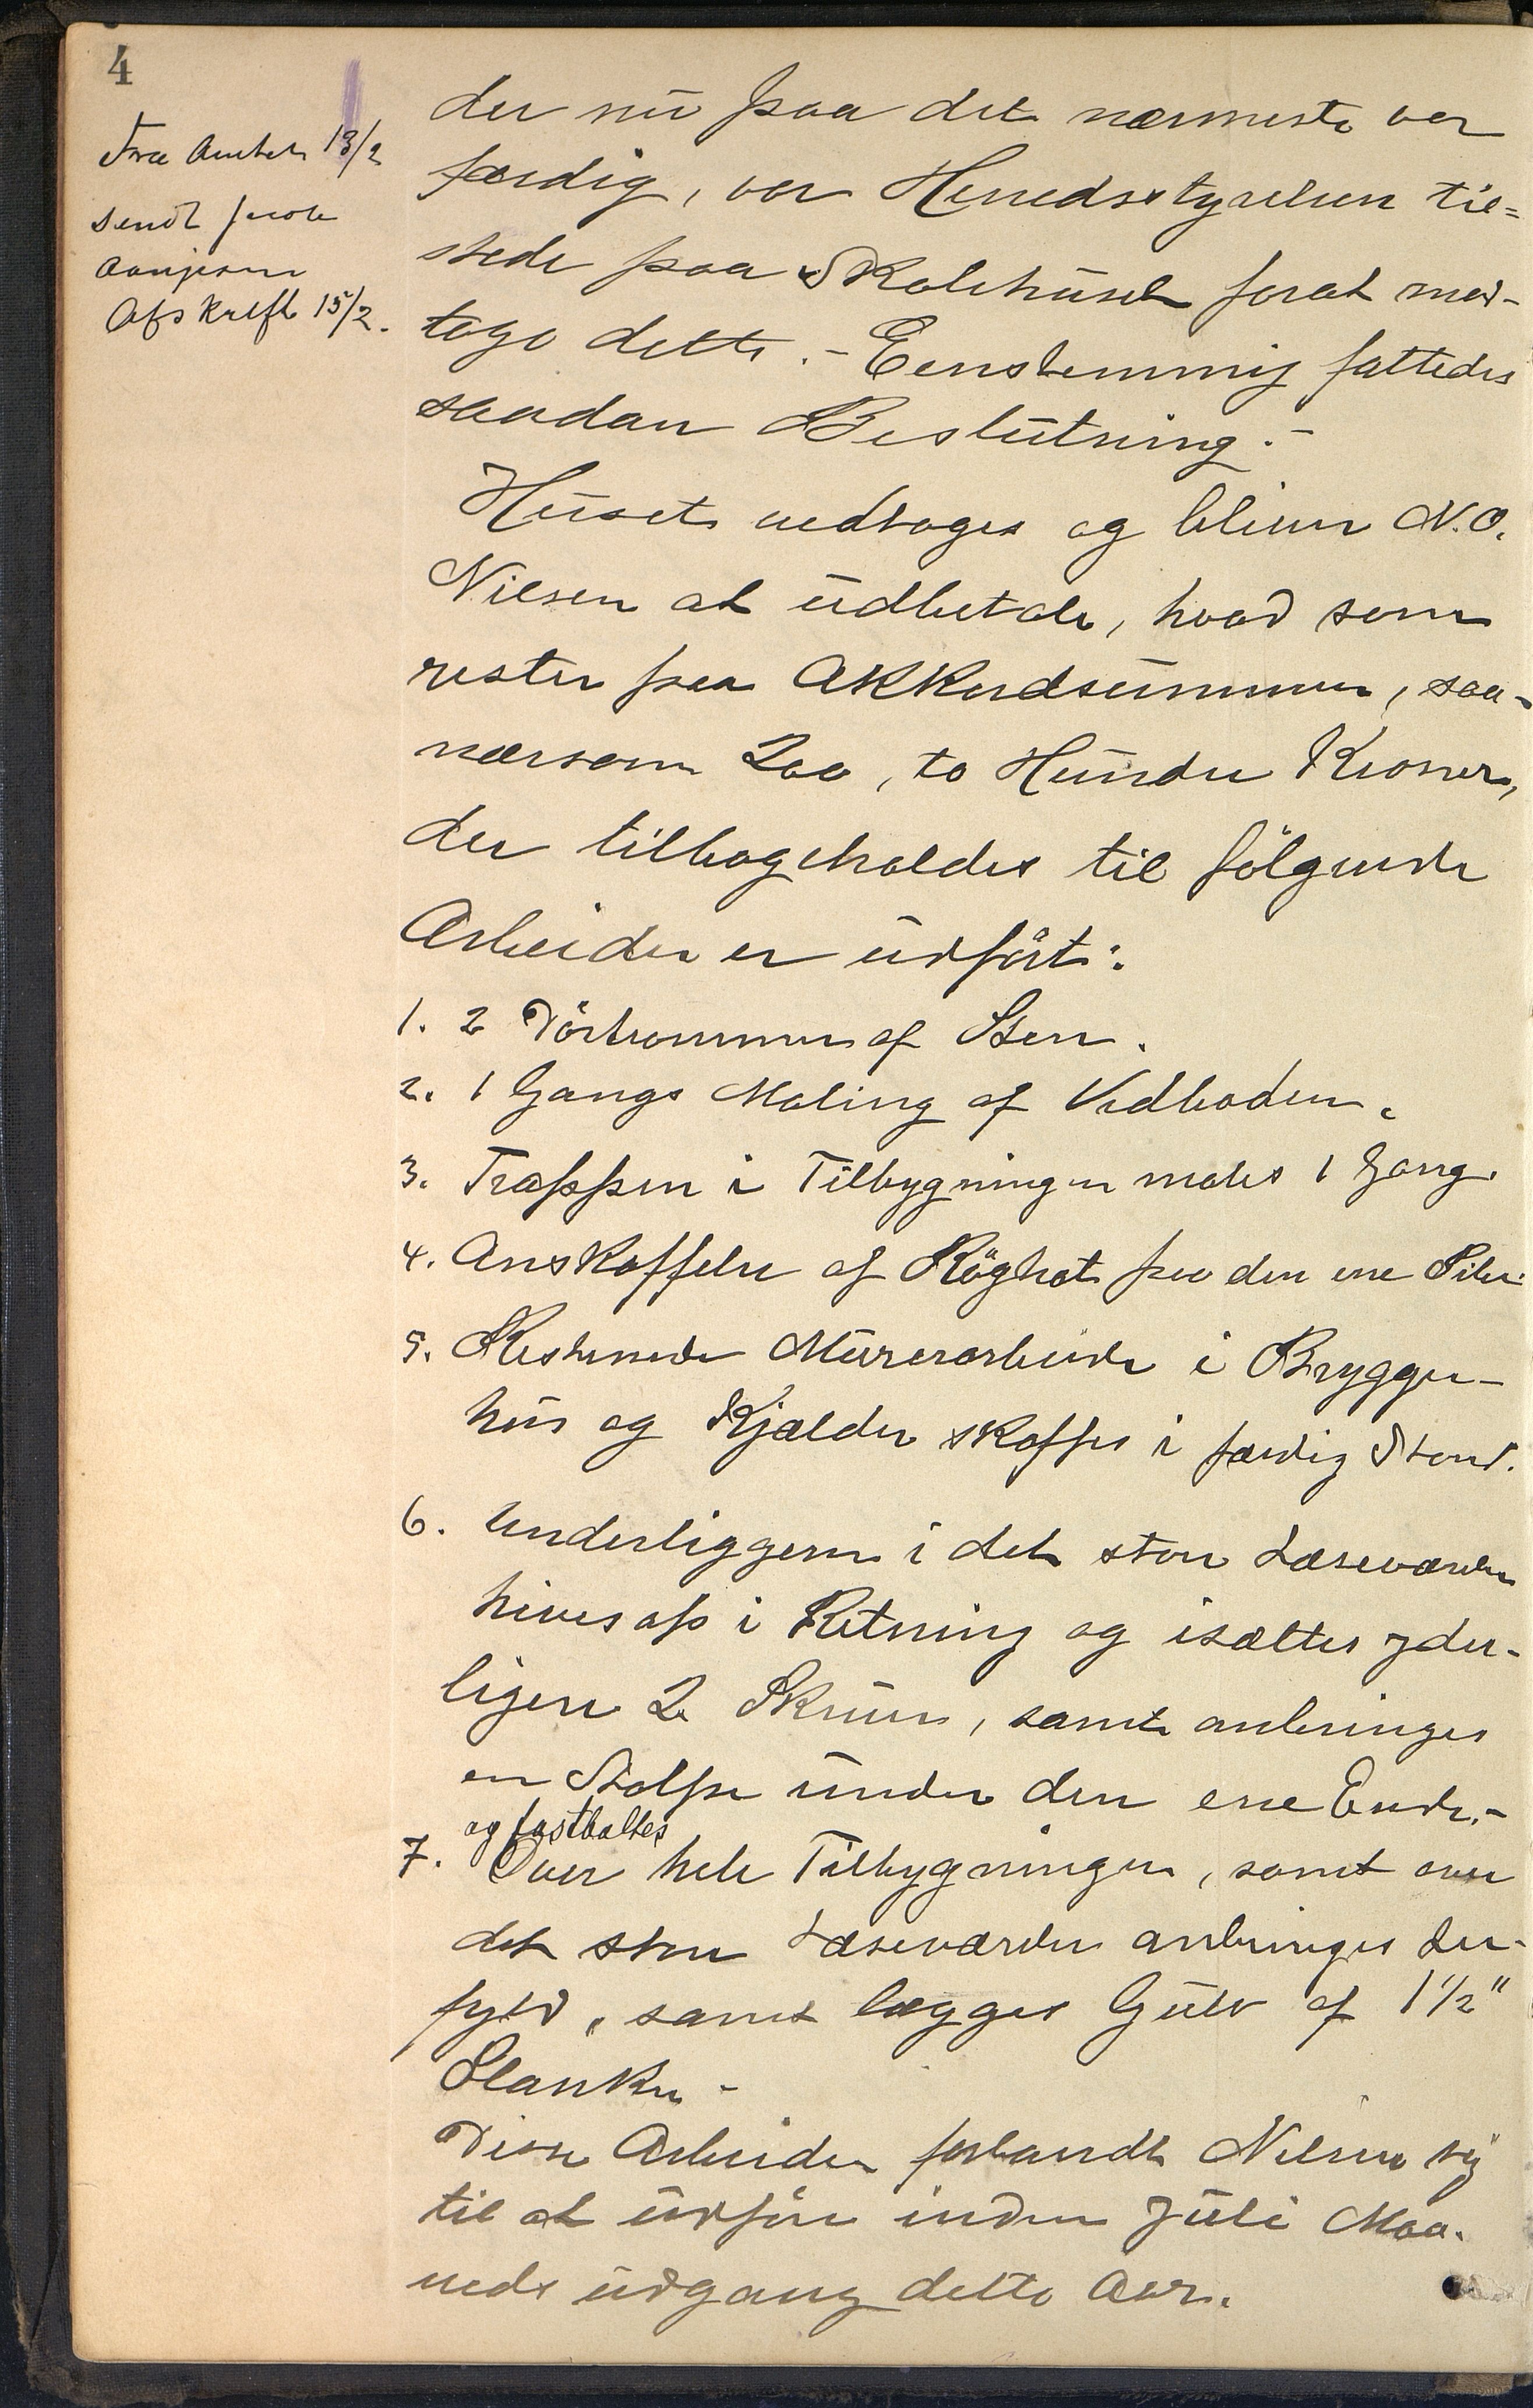 4
Fra Amtet 13/2
sendt
Afskrift 15/2.
der nu paa det nærmeste var
færdig, var Herredsstyrelsen til=
stede paa Skolehuset forat mod-
tage dette. - Eenstemmig fattedes
saadan Beslutning. -
Huset modtoges og bliver N.O.
Nilsen at udbetale, hvad som
rester paa Akkordsummen, saa-
nærsom 200, to Hundre Kroner,
der tilbageholdes til følgende
Arbeider er udført:
1. 2 Dörtrommer af Sten.
2. 1 Gangs Maling af Vedboden.
3. Trappen i Tilbygningen males 1 Gang.
4. Anskaffelse af Röghat paa den ene Pibe.
5. Resterende Murerarbeide i Brygger-
hus og Kjælder skaffes i færdig Stand.
6. Underliggeren i det store Læseværelse
hives op i Retning og isættes yder-
ligere 2 Skruer, samt anbringes
en Stolpe under den ene Ende. -
og fastboltes
7. Over hele Tilbygningen, samt over
det store Læseværelse anbringes Ler-
fyld, samt lægges Gulv af 1 1/2"
Planker -
Disse Arbeider forbandt Nilsen sig
til at udføre inden Juli Maa-
neds udgang dette Aar.